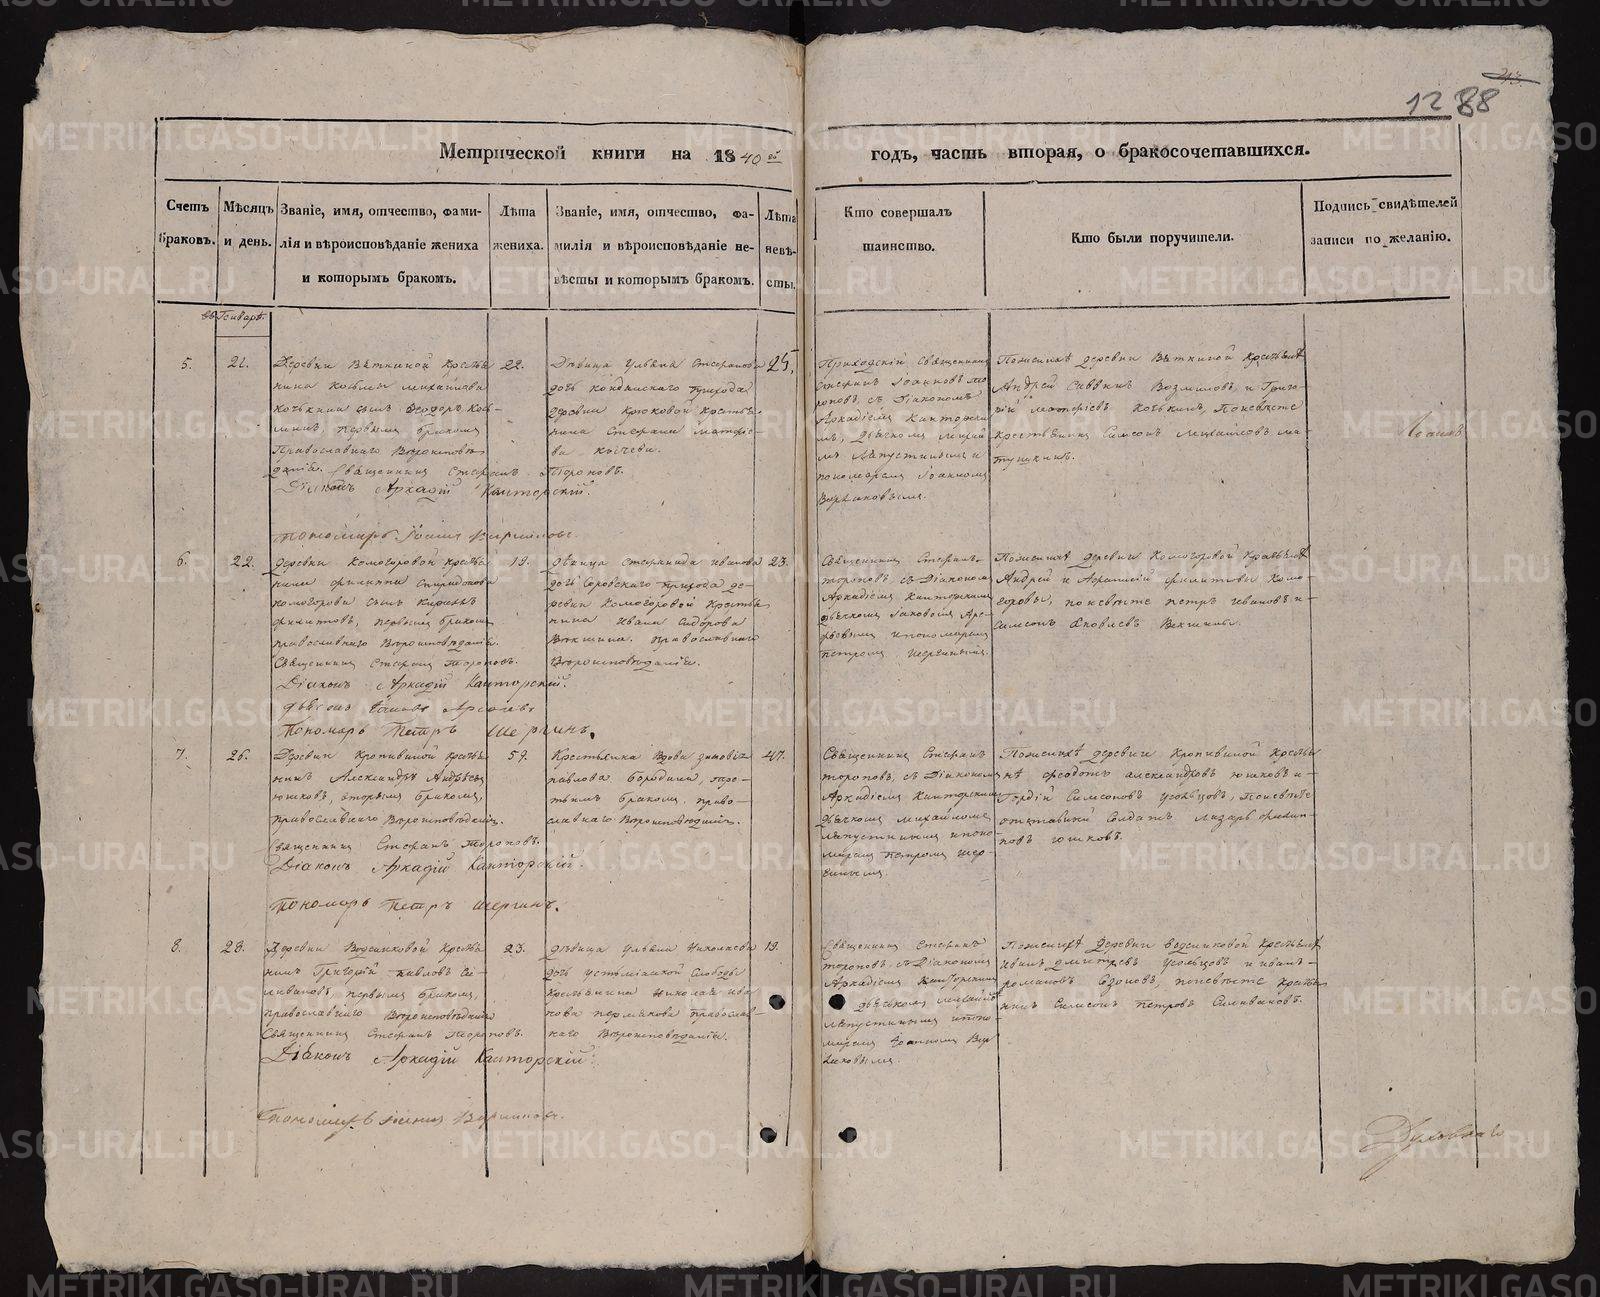 1288
Метрической книги на 1840 й годъ, часть вторая, о бракосочетавшихся.
Счетъ браковъ.
Мѣсяцъ и день.
Званіе, имя, отчество, фами-
лія и вѣроисповѣданіе жениха
и которымъ бракомъ.
Лѣта
жениха.
Званіе, имя, отчество, фа-
милія и вѣроисповѣданіе не-
вѣсты и которымъ бракомъ.
Лѣта
невѣ-
сты.
Кто совершалъ
таинство.
Кто были поручители.
Подпись свидѣтелей
записи по желанію.
Генварь.
5.
21.
Деревни Вяткиной кресть
янина Козьмы Михайлова
сынъ Ѳеодоръ Козь-
минъ, первымъ бракомъ
Православнаго Вѣроисповѣ
данія. Священникъ Стефанъ Тороповъ.
Діаконъ Аркадій Канторскій.
Пономарь Іоаннъ
22.
Дѣвица Ульяна Стефанова
дочь прихода
деревни Крюковой крестья-
нина Стефана Матфѣе-
ва
25.
Приходскій Священникъ
Стефанъ Іоанновъ То-
роповъ, съ Діакономъ
Аркадіемъ Канторски
мъ, дьячкомъ Михаи
ломъ Лапустинымъ и
пономаремъ Іоанномъ
Пожениxѣ деревни Вяткиной крестьяне
Андрей Саввинъ и Григо-
рій Матфіевъ Поневѣсте
крестьянинъ Симеонъ Михайловъ Ма-
тушкинъ.
6.
22.
Деревни Комогоровой кресть
янина Филиппа Спиридонова
Комогорова сынъ
Филиповъ, первымъ бракомъ
православнаго Вѣроисповѣданія.
Священникъ Стефанъ Тороповъ.
Діаконъ Аркадій Канторскій.
Дьячокъ Іаковъ Арефьевъ
Пономарь Петръ Шергинъ.
19.
Дѣвица Стефанида Иванова
дочь прихода де-
ревни Комогоровой кресть
янина Ивана Сидорова
Векшина. Православнаго
Вѣроисповѣданія.
23.
Священникъ Стефанъ
Тороповъ, съ Діакономъ
Аркадіемъ Канторскимъ
дьячкомъ Іаковомъ Аре-
фьевымъ и пономаремъ
Петромъ Шергинымъ.
Пожениxѣ деревни Комогоровой крестьяне
Андрей и Филиповы Комо-
горовы, поневѣсте Петръ Ивановъ и
Симеонъ Яковлевъ Векшины.
7.
26.
Деревни Кропивиной кресть
янинъ Александръ Андреевъ
Юшковъ, вторымъ бракомъ,
православнаго Вѣроисповѣданія.
Священникъ Стефанъ Тороповъ.
Діаконъ Аркадій Канторскій.
Пономарь Петръ Шергинъ.
59.
Крестьянка Вдова Зиновія
Павлова Бородина, тре-
тьимъ бракомъ, право-
славнаго Вѣроисповѣданія.
47.
Священникъ Стефанъ
Тороповъ, съ Діакономъ
Аркадіемъ Канторскимъ
дьячкомъ Михайломъ
Лапустинымъ и поно-
маремъ Петромъ Шер-
гинымъ.
Пожениxѣ деревни Кропивиной крестья
не Ѳеодотъ Александровъ Юшковъ и
Гордій Симеоновъ Усольцовъ, Поневѣсте
отставной Солдатъ Лазарь Филип-
повъ Юшковъ.
8.
28.
Деревни Водениковой кресть
янинъ Григорій Павловъ Се-
ливановъ, первымъ бракомъ,
православнаго Вѣроисповѣданія
Священникъ Стефанъ Тороповъ.
Діаконъ Аркадій Канторскій.
Пономарь
23.
Дѣвица Ульяна Николаева
дочь Слободы
крестьянина Николая Ива
нова Пермякова православ-
наго Вѣроисповѣданія.
19.
Священникъ Стефанъ
Тороповъ, съ Діакономъ
Аркадіемъ Канторскимъ
дьячкомъ Михайломъ
Лапустинымъ и поно-
маремъ Іоанномъ
Пожениxѣ деревни Водениковой крестьяне
Иванъ Дмитріевъ Усольцовъ и Иванъ
Романовъ поневѣсте крестья
нинъ Симеонъ Петровъ Селивановъ.
Духовнаго
METRIKI.GASO-URAL.RU